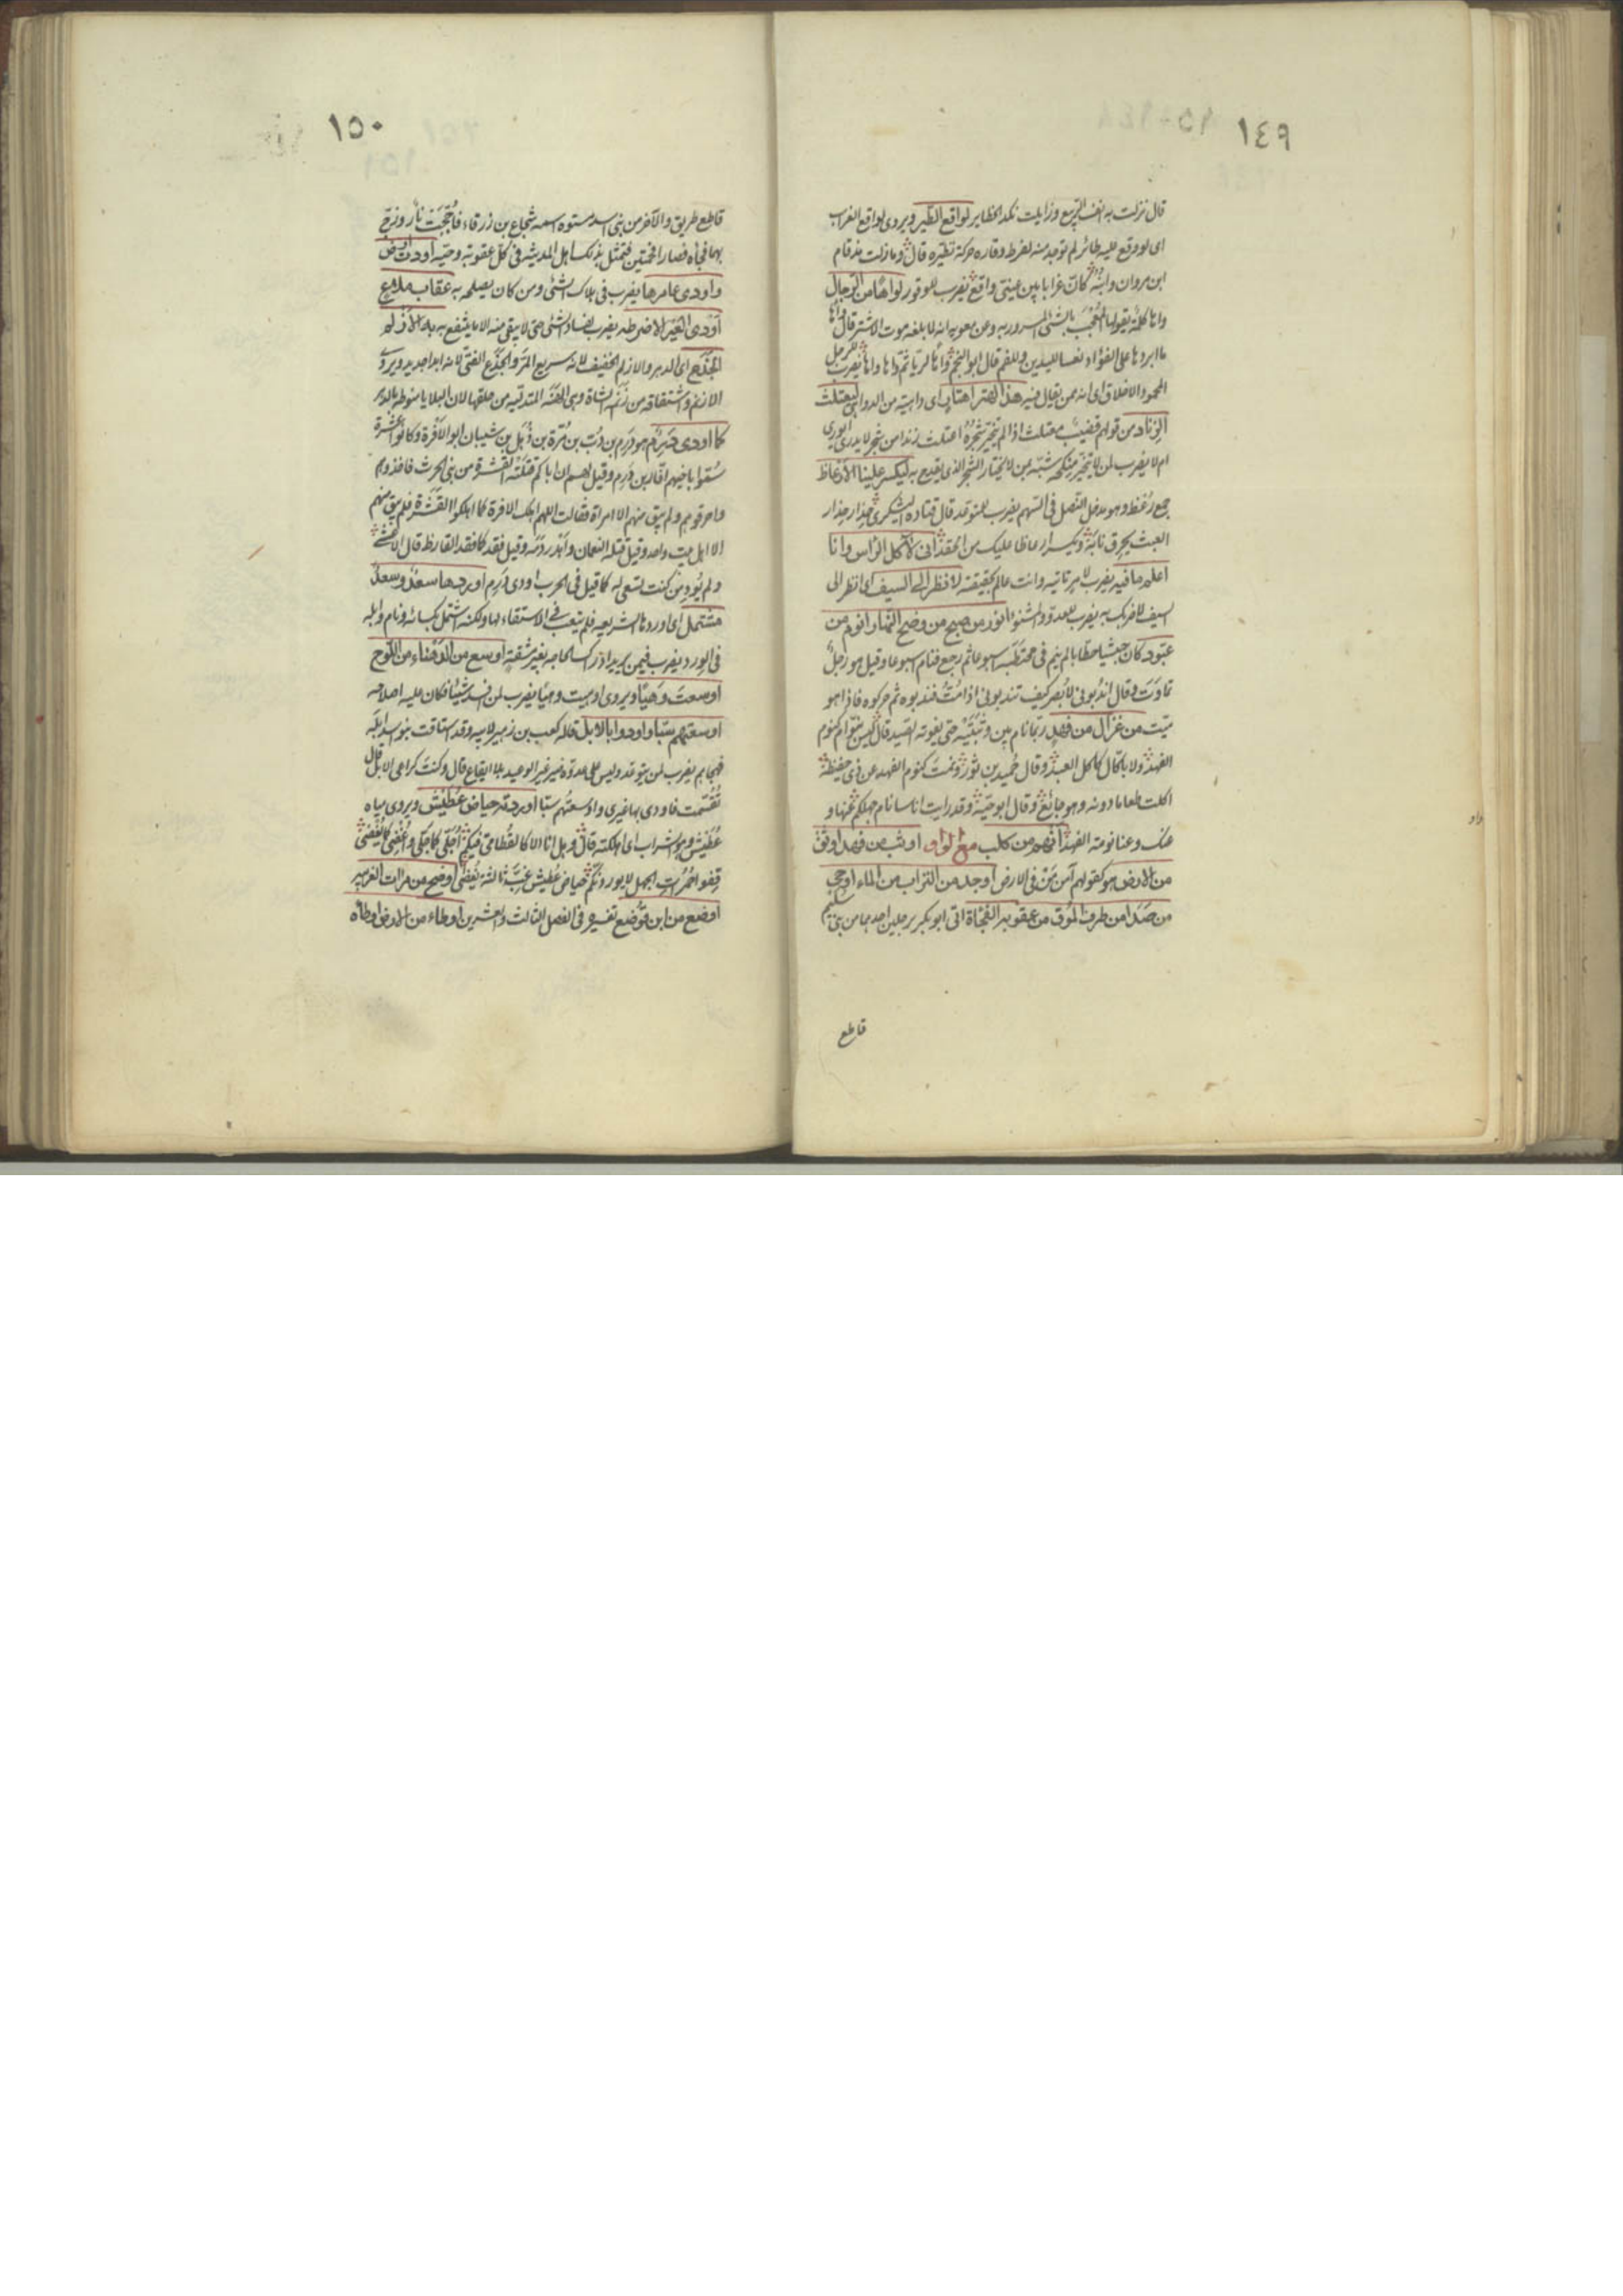 ١٤٩
قال نزلت به انف الربيع وزايلت نكد الحظاير لواقع الطير ويروى لواقع الغراب
اى لو وقع عليه طائر لم توجد منه لفرط وقاره حركة تطيره قال وما زلت مذ قام
ابن مروان وابنه كأن غرابا بين عينى واقع يضرب للوقور لواها من الرجال
واها كلمة يقولها المعجب بالشئ المسرور به وعن معوية انه لما بلغه موت الاشتر قال واها
ما ابردها على الفؤاد نفسا لليدين وللفم قال ابو النجم واها لريا ثم واها واها يضرب للرجل
المحمود الاخلاق اى انه ممن يقال فيه هذا الهتر اهتار اى داهية من الدواهى ليعتلث
الزناد من قولهم قضيب معتلث اذا لم يتخير شجره اعتلث زندا من شجر لا يدرى ايورى
ام لا يضرب لمن لا يتخير منكحه شبه بمن لا يختار الشجر الذى يقتدح به ليكسر علينا الارعاظ
جمع رعظ وهو مدخل النصل فى السهم يضرب للمتوعد قال قتادة اليشكرى حذار حذار
العبث يحرق نابه ويكسر ارعاظا عليك من الحقد انى لآكل الراس وانا
اعلم ما فيه يضرب لامر تاتيه وانت عالم بحقيقته لانظر الى السيف اى انظر الى
السيف لاضربك به يضرب للعدو والمشنوء انور من صبح من وضح النهار انوم من
عبود كان حبشيا حطابا لم ينم فى محتطبه اسبوعا ثم رجع فنام اسبوعا وقيل هو رجل
تماوت وقال اندبونى لابصر كيف تندبونى اذا مت فندبوه ثم حركوه فاذا هو
ميت من غزال من فهد ربما نام بين وثبتيه حتى يفوته الصيد قال ليس بنوام كنوم
الفهد ولا باكال كاكل العبد وقال حميد بن ثور ونمت كنوم الفهد عن ذى حفيظة
اكلت طعاما دونه وهو جائع وقال ابو حية وقد رايت اناسا نام جهلكم عنها و
عنك وعنا نومة الفهد انهم من كلب مع الواو اوثب من فهد اوثق
من الارض هو كقولهم آمن من فى الارض اوجد من التراب من الماء اوحى
من صدا من طرف الموق من عقوبة الفجاءة اتى ابو بكر برجلين احدهما من بنى سليم
واو
قاطع
١٥٠
قاطع طريق والآخر من بنى اسد مستوه اسمه شجاع بن زرقاء فاججت نار وزج
بهما فجأه فصارا فحمتين فتمثل بذلك اهل المدينة فى كل عقوبة وحية اودت ارض
واودى عامرها يضرب فى هلاك الشئ ومن كان يصلحه به عقاب ملاع
اودى العير الا ضرطه يضرب لفساد الشئ حتى لا يبقى منه الا ما لا ينتفع به به الازلم
الجذع اى الدهر والازلم الخفيف لانه سريع المر والجذع الفتى لانه ابدا جديد ويروى
الازنم واشتقاقه من زنمة الشاة وهى الهنة المتدلية من حلقها لان البلايا منوطة بالدهر
كما اودى درم هو درم بن دب بن مرة بن ذهل بن شيبان ابو الافرة وكانوا عشرة
سموا باخيهم افار بن درم وقيل لهم ان اباكم قتلته القشرة من بنى الحرث فاخذوهم
واحرقوهم ولم يبق منهم الا امراة فقالت اللهم اهلك الافرة كما اهلكوا القشرة فلم يبق منهم
الا اهل بيت واحد وقيل قتله النعمان واهدر دمه وقيل فقد كما فقد القارظ قال الاعشى
ولم يود من كنت تسعى له كما قيل فى الحرب اودى درم اوردها سعد وسعد
مشتمل اى اوردها الشريعة فلم يتعب فى الاستقاء لها ولكنه اشتمل بكسائه ونام وابله
فى الورد يضرب فيمن يريد ادراك الحاجة بغير مشقة اوسع من الدهناء من اللوح
اوسعت وهيا ويروى اوهيت وهيا يضرب لمن افسد شيئا فكان عليه اصلاحه
اوسعتهم سبا واودوا بالابل قاله كعب بن زهير لابيه وقد استاقت بنو اسد ابله
فهجاهم يضرب لمن يتوعد وليس على عدوه ضير غير الوعيد بلا ايقاع قال وكنت كراعى الابل قال
تقسمت فاودى بها غيرى واوسعتهم سبا اوردته حياض عطيش ويروى مياه
عطيش وهو السراب اى اهلكته قال وهل انا الا كالقطامى فيكم اجلى كما جلى واغضى كما يغضى
قفوا حمرات الجهل لا يوردنكم حياض عطيش غب ثالثة بغضى اوضح من مرآت الغريبة
اوضع من ابن قوضع تفسيره فى الفصل الثالث والعشرين اوطاء من الارض اوطاه